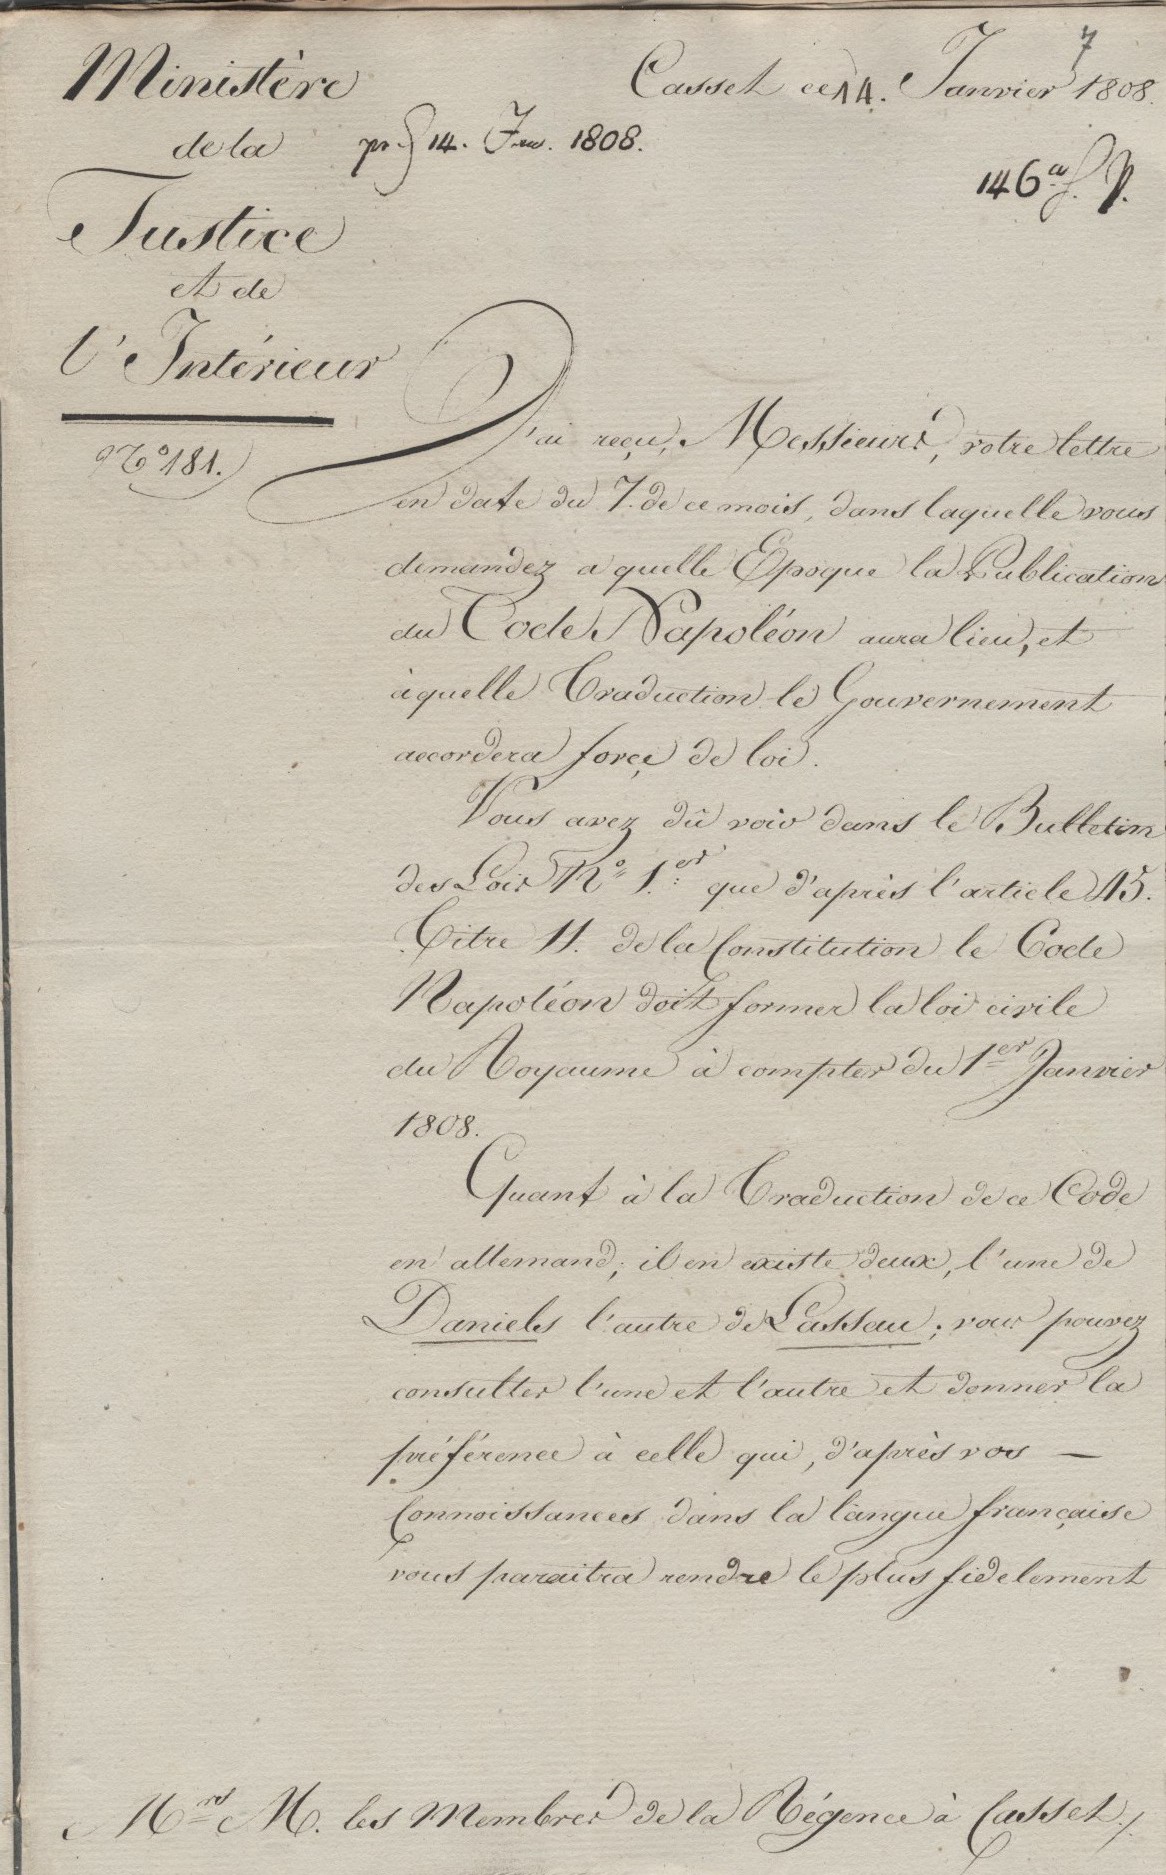 7
Ministère
Cassel ce 14. Janvier 1808.
de la
pr. 14. Jan. 1808.
146
Justice
et de
l'Intérieur
No 181.
J'ai reçu, Messieurs, votre lettre
en date du 7. de ce mois, dans laquelle vous
demandez a quelle Epoque la Publication
du Code Napoléon aura lieu, et
à quelle Traduction le Gouvernement
accordera force de loi.
Vous avez dû voir dans le Bulletin
des Loix No 1.er que d'après l'article 45.
Titre 11. de la Constitution le Code
Napoléon doit former la loi civile
du Royaume à compter du 1er Janvier
1808.
Quant à la Traduction de ce Code
en allemand; il en existe deux, l'une de
Daniels l'autre de Lassau; vous pouvez
consulter l'une et l'autre et donner la
préférence à celle qui, d'après vos —
Connoissances dans la langue française
vous paraitra rendre le plus fidelement
Mrs M. les Membres de la Régence à Cassel./.